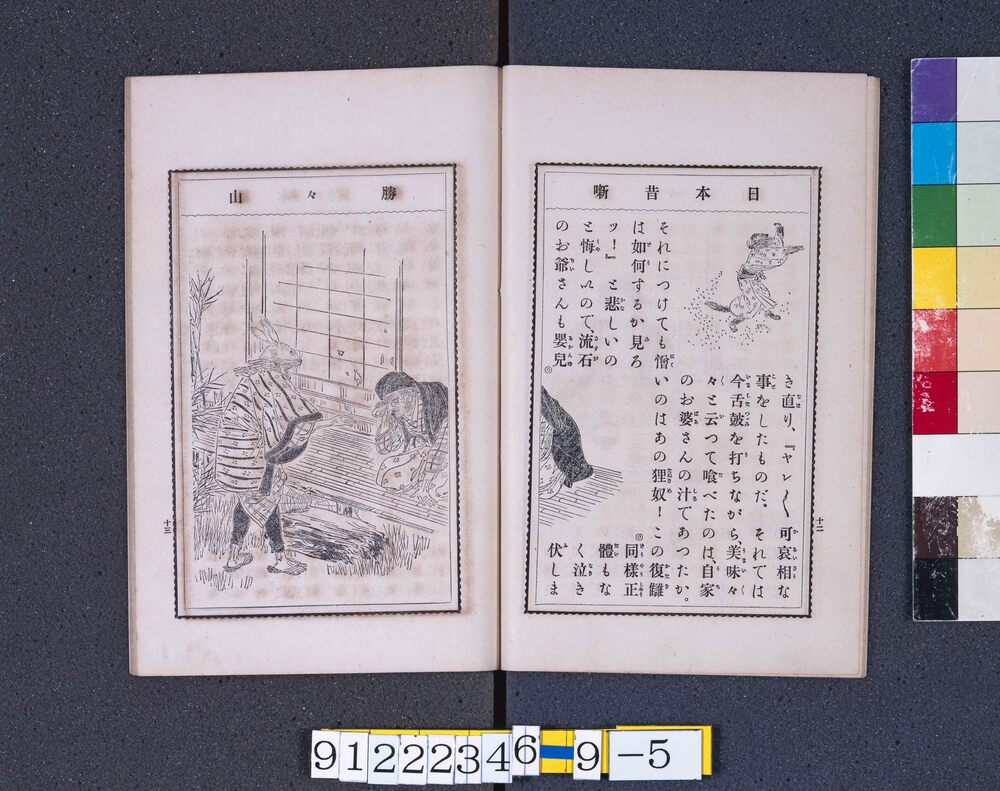 日本昔噺
き直り、『ヤレ〱可哀相な
事をしたものだ。それでは
今舌皷を打ちながら、美味々
々と云つて喰べたのは、自家
のお婆さんの汁であつたか。
それにつけても憎いのはあの狸奴!この復讎
は如何するか見ろ
ッ!』と悲しいの
と悔しいので、流石
のお爺さんも嬰兒◎
◎同樣正
體もな
く泣き
伏しま
十二
勝々山
十三
91222346 9-5